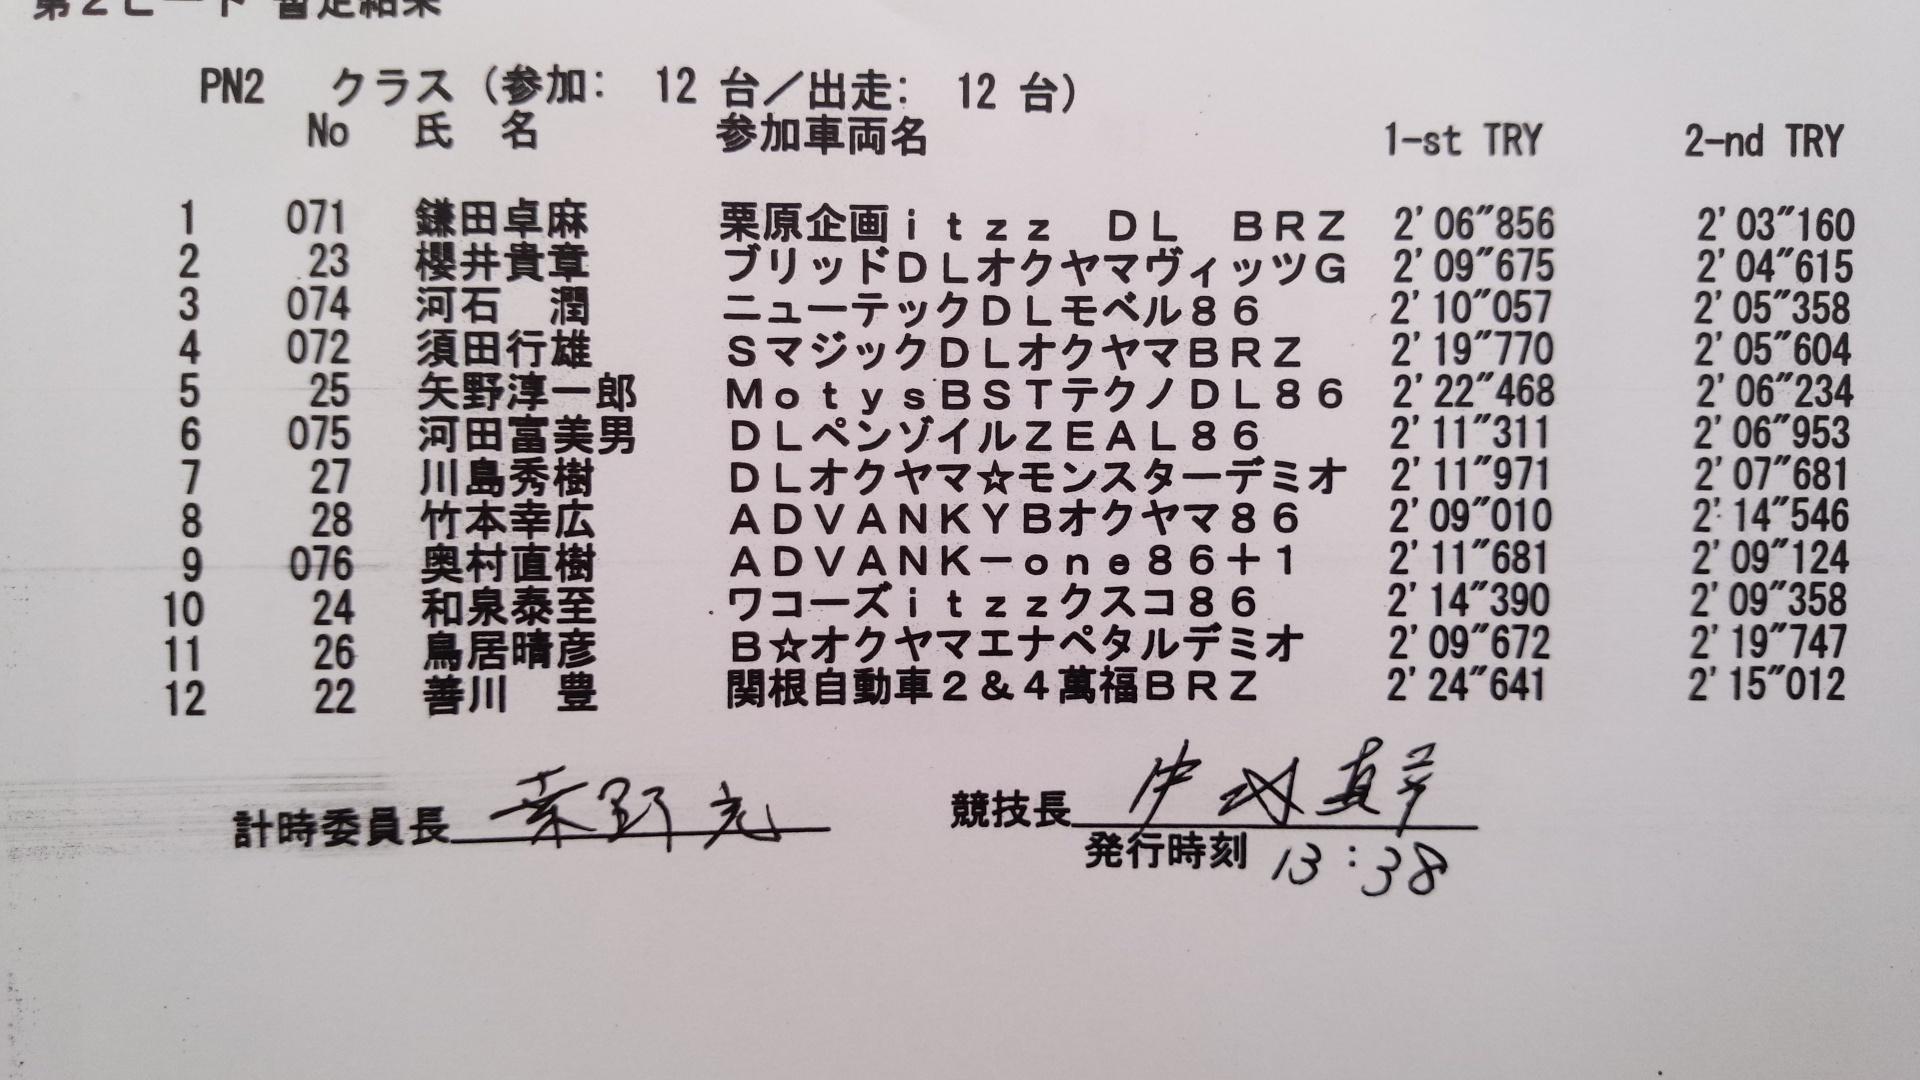 第2ヒート 暫定結果
PN2 クラス (参加: 12 台/出走: 12 台)
No 氏 名 参加車両名 1-st TRY 2-nd TRY
1 071 鎌田卓麻 栗原企画itzz DL BRZ 2'06"856 2'03"160
2 23 櫻井貴章 ブリッドDLオクヤマヴィッツG 2'09"675 2'04"615
3 074 河石 潤 ニューテックDLモベル86 2'10"057 2'05"358
4 072 須田行雄 SマジックDLオクヤマBRZ 2'19"770 2'05"604
5 25 矢野淳一郎 MotysBSTテクノDL86 2'22"468 2'06"234
6 075 河田富美男 DLペンゾイルZEAL86 2'11"311 2'06"953
7 27 川島秀樹 DLオクヤマ☆モンスターデミオ 2'11"971 2'07"681
8 28 竹本幸広 ADVANKYBオクヤマ86 2'09"010 2'14"546
9 076 奥村直樹 ADVANK-one86+1 2'11"681 2'09"124
10 24 和泉泰至 ワコーズitzzクスコ86 2'14"390 2'09"358
11 26 鳥居晴彦 B☆オクヤマエナペタルデミオ 2'09"672 2'19"747
12 22 善川 豊 関根自動車2&4萬福BRZ 2'24"641 2'15"012
計時委員長 競技長
発行時刻 13:38